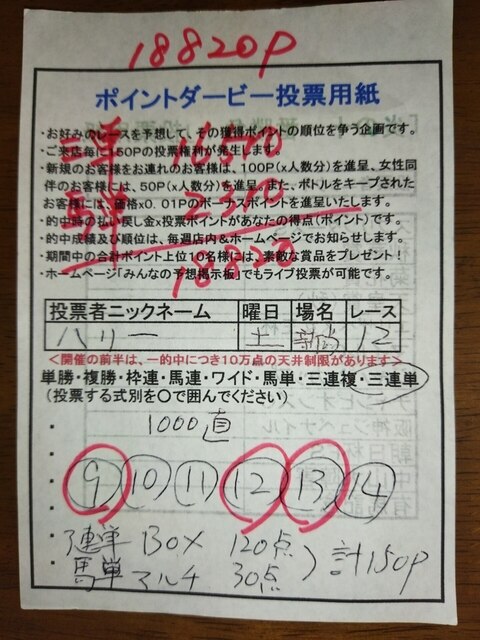 18820P
ポイントダービー投票用紙
・お好みのレースを予想して、その獲得ポイントの順位を争う企画です。
・ご来店毎に150Pの投票権利が発生します。
・新規のお客様をお連れのお客様は、100P(x人数分)を進呈、女性同
伴のお客様には、50P(x人数分)を進呈、また、ボトルをキープされた
お客様には、価格x0.01Pのボーナスポイントを進呈いたします。
・的中時の払い戻し金x投票ポイントがあなたの得点(ポイント)です。
・的中成績及び順位は、毎週店内&ホームページでお知らせします。
・期間中の合計ポイント上位10名様には、素敵な賞品をプレゼント!
・ホームページ「みんなの予想掲示板」でもライブ投票が可能です。
18820
投票者ニックネーム 曜日 場名 レース
ハリー 土 新潟 12
<開催の前半は、一的中につき10万点の天井制限があります>
単勝・複勝・枠連・馬連・ワイド・馬単・三連複・三連単
(投票する式別を○で囲んでください)
1000直
⑨ ⑩ ⑪ ⑫ ⑬ ⑭
3連単 BOX 120点
馬単 マルチ 30点 ) 計150P